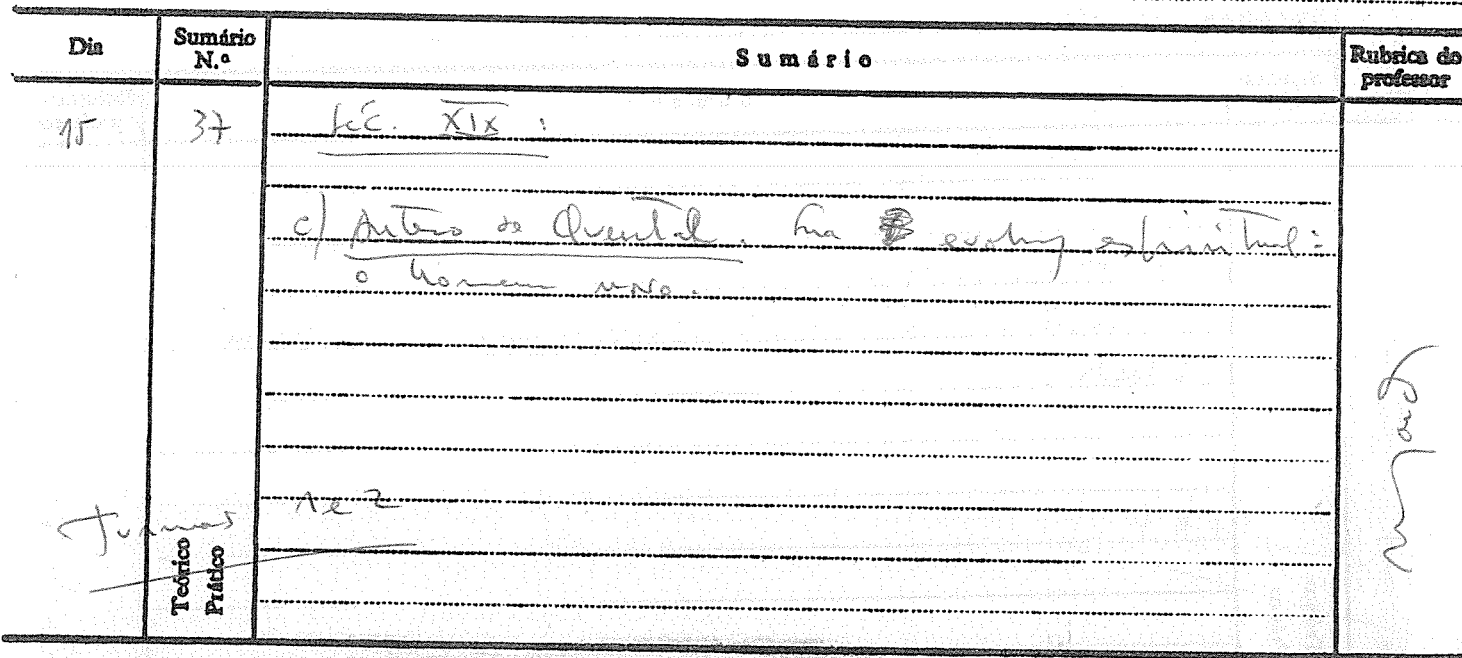 Dia
Sumário N.º
Sumário
Rubrica do professor
15
37
Séc. XIX :
c) Antero de Quental. Sua evolução espiritual:
o homem uno.
Turmas 1 e 2
Teórico
Prático